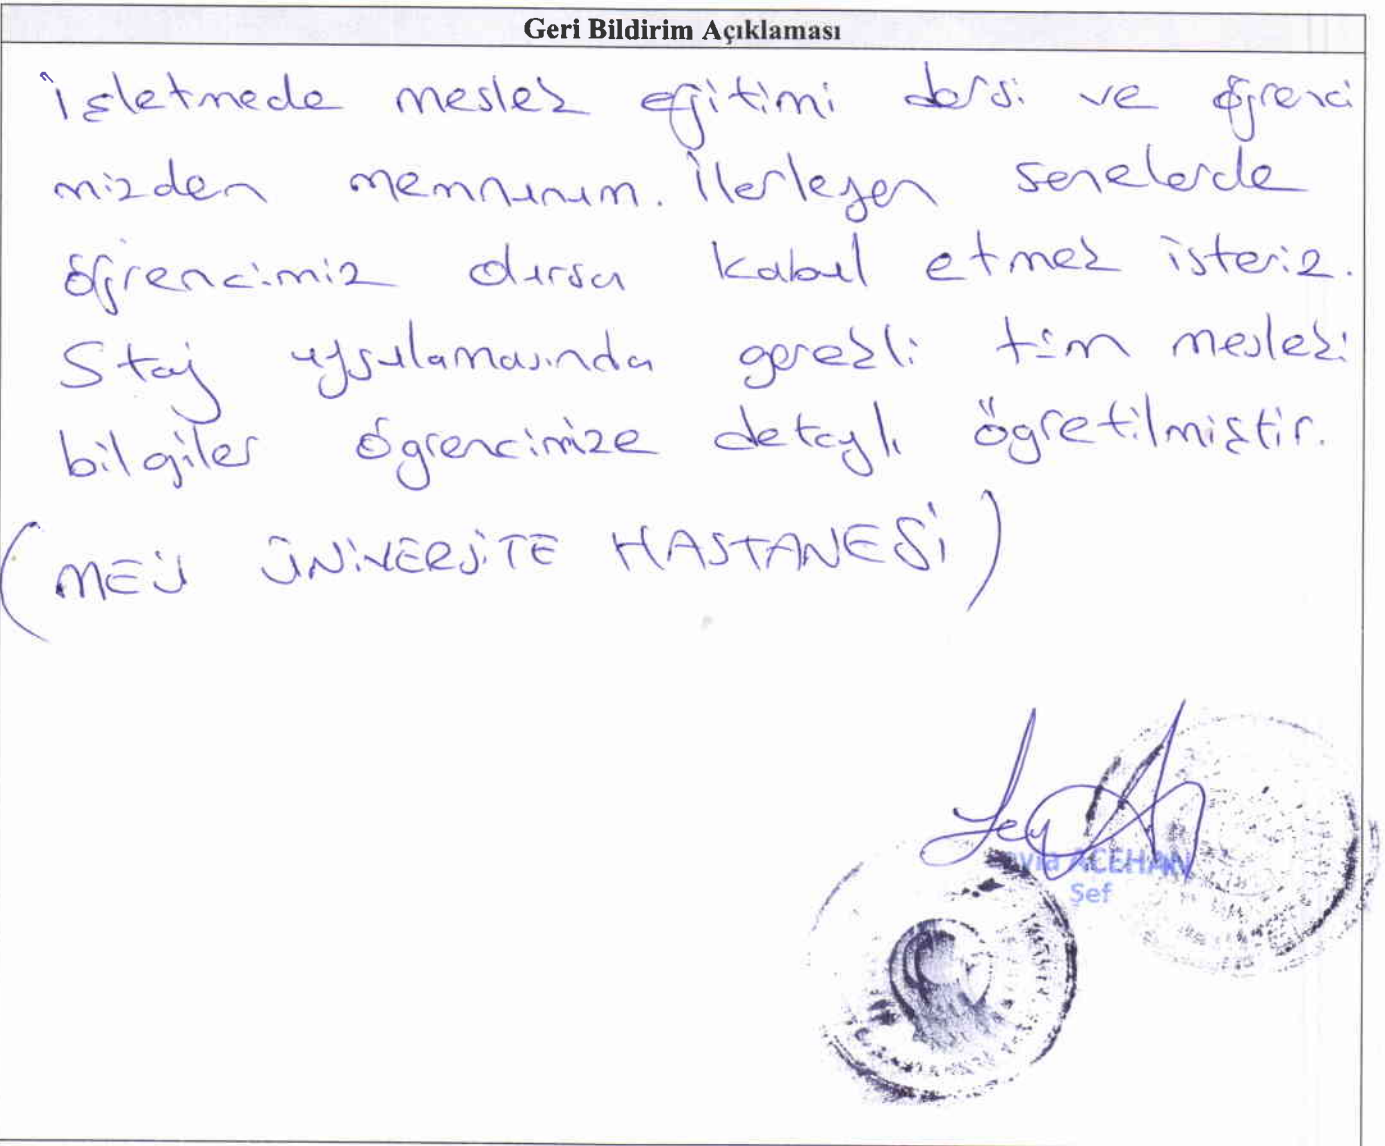 Geri Bildirim Açıklaması
İşletmede meslek eğitimi dersi ve öğrenci
mizden memnunum. İlerleyen senelerde
öğrencimiz olursa kabul etmek isteriz.
Staj uygulamasında gerekli tüm mesleki
bilgiler öğrencimize detaylı öğretilmiştir.
(MEÜ ÜNİVERSİTE HASTANESİ)
ACEHAN
Şef